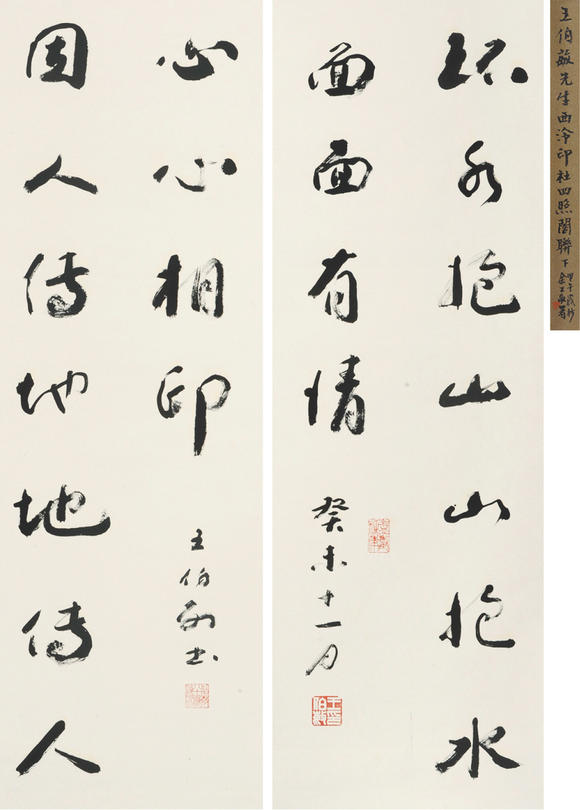 环水抱山山抱水
面面有情
癸未十一月
因人傳地地傳人
心心相印
王伯敏书
王伯敏先生西泠印社四照閣聯下
甲午